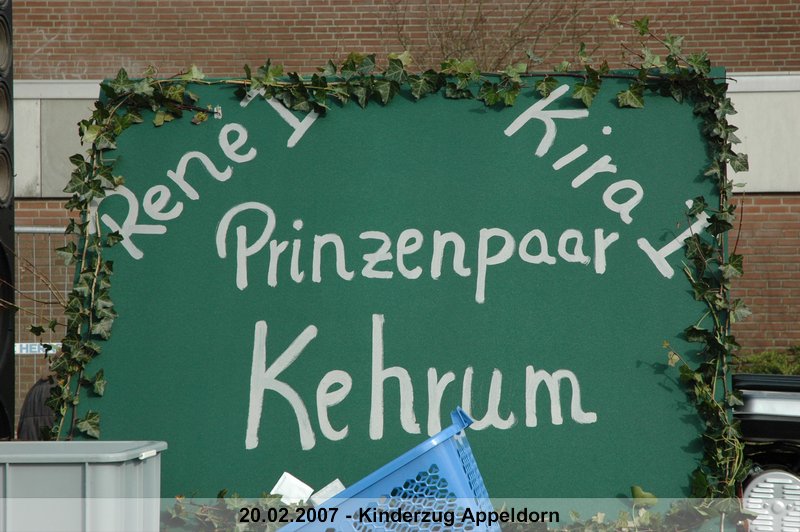 Rene I
Kira I
Prinzenpaar
Kehrum
20.02.2007 - Kinderzug Appeldorn